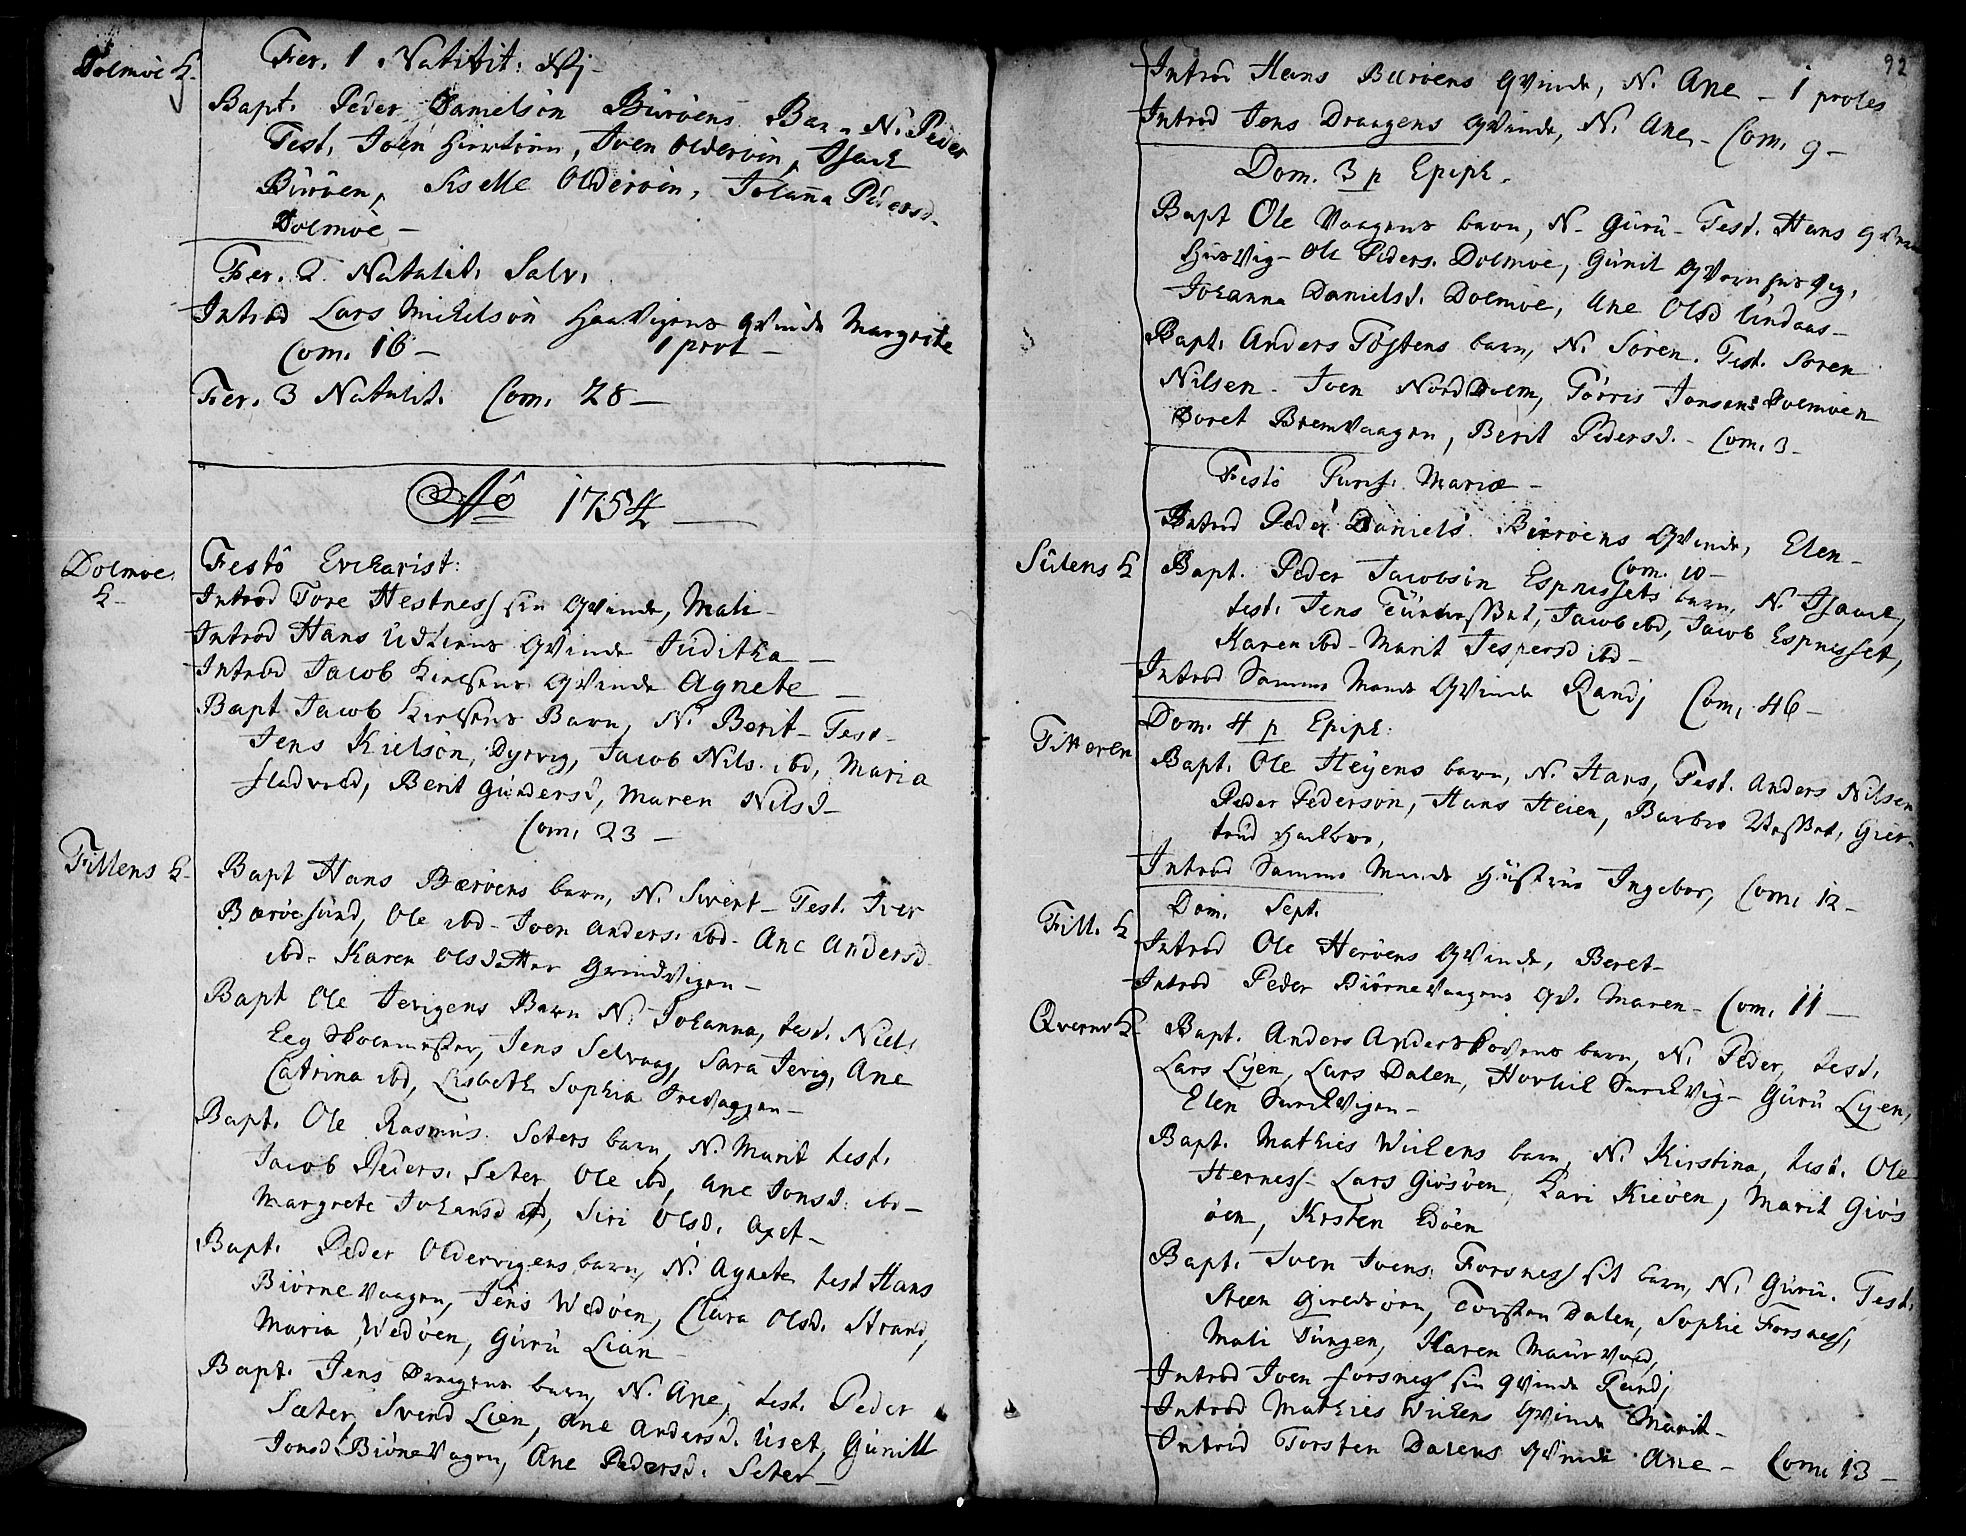 Dolmoe K. Fer. 1 Nativit: Xj -
Bapt. Peder Danielsön Büröens Barn N. Peder
Test. Joen Hiertöen, Joen Olderöen, Isach
Büröen, Siselle Olderöen, Johanna Pedersd.
Dolmoe -
Fer. 2. Natalit. Salv.
Introd Lars Michelsön Haavigens qvinde Margrete
Com. 16 - 1 prot -
Fer. 3 Natalit. Com. 28 -
Aö 1754 -
Dolmoe K. Festo Evcharist:
Introd Tore Hestness sin qvinde, Mali -
Introd Hans Udtians qvinde Juditha -
Introd Jacob Kielsens qvinde Agnete -
Bapt Jacob Kielsens Barn, N. Berit - Test -
Jens Kielsön, Dyrvig, Jacob Nils. ibd, Maria
Fladvold, Berit Gundersd, Maren Nilsd -
Com. 23 -
Fillens K. Bapt Hans Bæröens barn, N. Sivert - Test. Iver
Bæröesund, Ole ibd - Joen Anders. ibd - Ane Andersd
ibd - Karen Olsdatter Grindvigen -
Bapt Ole Jevigens Barn N. Johanna, test. Niels
Eeg Skolemester, Jens Selvaag, Sara Jevig, Ane
Catrina ibd, Lisbeth Sophia Trevaagen -
Bapt. Ole Rasmus. Seters barn, N. Marit test.
Jacob Peders. Seter, Ole ibd, Ane Jonsd. ibd -
Margrete Johansd ibd, Siri Olsd. Axet -
Bapt. Peder Oldervigens barn, N. Agnete test Hans
Biörnevaagen, Jens Wedöen, Clara Olsd. Strand,
Maria Wedöen, Gürü Lian -
Bapt. Jens Draagens barn, N. Ane, test. Peder
Sæter, Svend Lien, Ane Andersd. Uset, Günill
Jonsd. Biörnevagen, Ane Pedersd. Seter -
92
Introd Hans Büröens qvinde, N. Ane - 1 proles
Introd Jens Draagens qvinde, N. Ane - Com. 9 -
Dom. 3 p Epiph.
Bapt Ole Vaagens barn, N. Gürü - Test. Hans qvern
Husvig - Ole Peders. Dolmoe, Günil qvernhusvig,
Johanna Danielsd. Dolmoe, Ane Olsd Undaas -
Bapt. Anders Töstens barn, N. Sören. Test. Sören
Nilsen - Joen Norddolm, Törris Jonsens Dolmoen
Doret Bremvaagen, Berit Pedersd. - Com. 3 -
Festo Purif. Mariæ -
Introd Peder Daniels. Büröens qvinde, Elen -
Com. 10 -
Sülens K Bapt. Peder Jacobsön Espnessets barn, N. Isach,
test. Jens, Jacob ibd, Jacob Espnesset,
Karen ibd - Marit Jespersd ibd -
Introd Samme Mands qvinde Randj Com. 46 -
Titteren Dom. 4 p Epiph.
Bapt. Ole Heyens barn, N. Hans, Test. Anders Nilsen
Peder Pedersön, Hans Heien, Barbro, Gier-
trud,
Introd Samme Mands Hüstrüe Ingebor, Com. 12 -
Fill. K Dom. Sept.
Introd Ole Heröens qvinde, Beret -
Introd Peder Biörnevaagens qv. Maren - Com. 11 -
Qverne K. Bapt. Anders Anderskovens barn, N. Peder, test.
Lars Lyen, Lars Dalen, Horkil Surchvig - Gürü Lyen,
Elen Surchvigen -
Bapt. Mathies Wichens barn, N. Kirstina, test. Ole
Herness - Lars Giösöen, Kari Kieöen, Marit Giös
öen, Kirsten Edöen
Bapt. Joen Joens. Forsness sit barn, N. Gürü. Test.
Steen Gieldsöen, Torsten Dalen, Sophie Forsness,
Mali Süngen, Karen Maurvoed,
Introd Joen Forsness sin qvinde Randj
Introd Mathies Wichens qvinde Marit -
Introd Torsten Dalens qvinde Ane - Com. 13 -